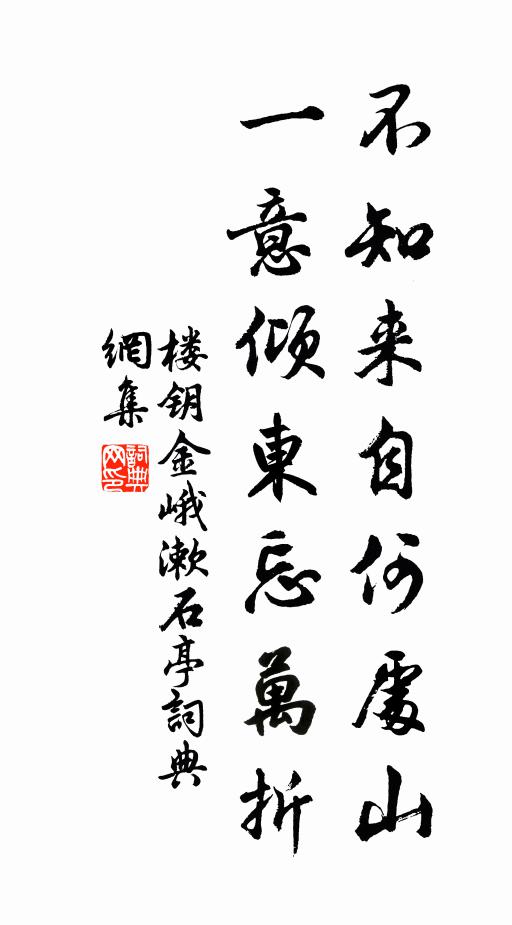 不知来自何處山
一意倾東忘萬折
楼钥金峨漱石亭詞典
網集
詞典
网印